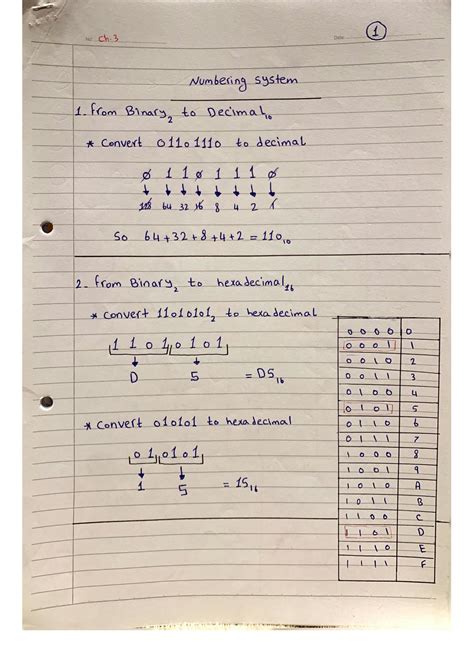 No: Ch.3
Date
1
Numbering system
1. from Binary₂ to Decimal₁₀
* Convert 01101110 to decimal
0 1 1 0 1 1 1 0
↓ ↓ ↓ ↓ ↓ ↓ ↓ ↓
128 64 32 16 8 4 2 1
So 64+32+8+4+2 = 110₁₀
2- from Binary₂ to hexadecimal₁₆
* Convert 11010101₂ to hexadecimal
1 1 0 1 0 1 0 1
↓ ↓
D 5 = D5₁₆
* Convert 010101 to hexadecimal
0 1 0 1 0 1
↓ ↓
1 5 = 15₁₆
0 0 0 0 0
0 0 0 1 1
0 0 1 0 2
0 0 1 1 3
0 1 0 0 4
0 1 0 1 5
0 1 1 0 6
0 1 1 1 7
1 0 0 0 8
1 0 0 1 9
1 0 1 0 A
1 0 1 1 B
1 1 0 0 C
1 1 0 1 D
1 1 1 0 E
1 1 1 1 F